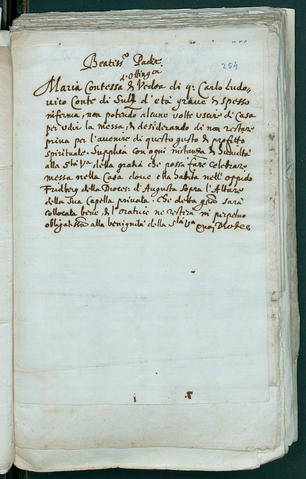 Beatiss.o Padre
254
d'Ottingen
Maria Contessa & Vedoa di q. Carlo Ludo-
vico Conte di Sulz d'età graue & spesso
inferma, non potendo alcune volte uscir di Casa
per udir la messa, & desiderando di non restare
priua per l'auenire di questo gusto & profitto
spirituale. Supplica con ogni instanza & humiltà
alla S.tà V.ra della gratia che possa fare celebrare
messa nella Casa doue ella habita nell' oppido
Fridberg della Diocesi d'Augusta sopra l'Altare
della sua Capella priuata. Che detta gratia sarà
collocata bene, & l'oratrice ne restarà in perpetuo
obligatissima alla benignità della S.tà V.ra